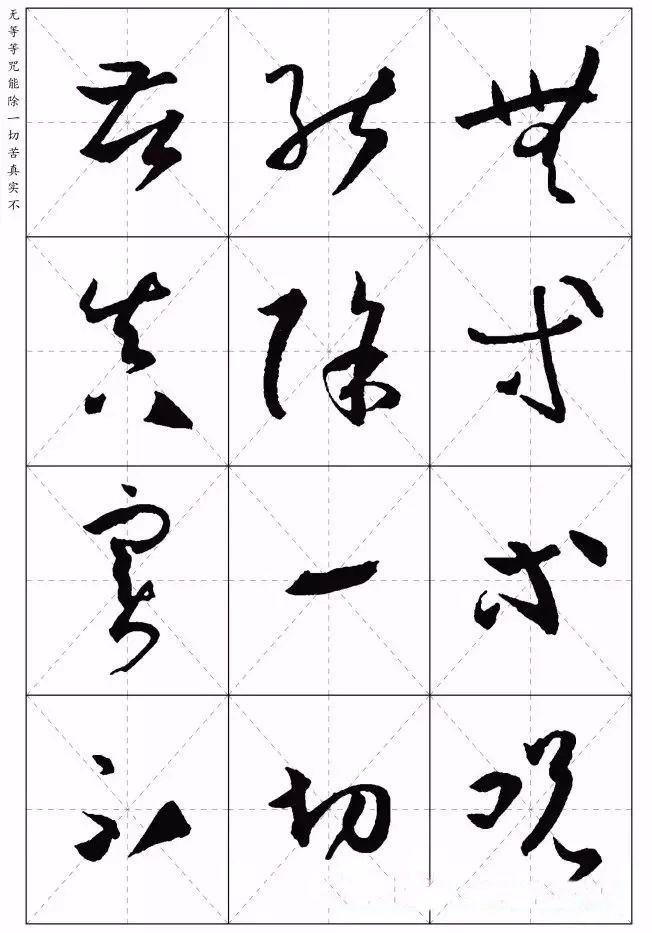 无等等咒能除一切苦真实不
無等等咒
能除一切
苦真實不